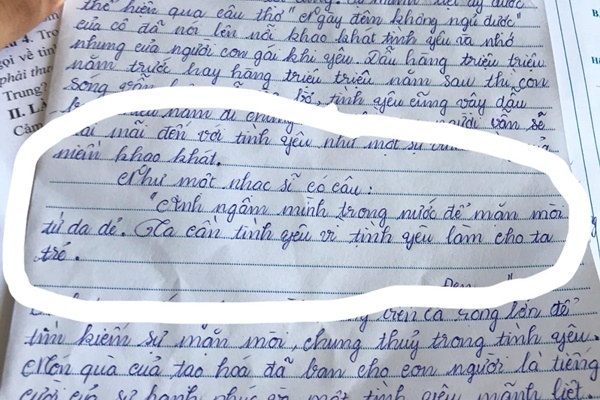 thể hiện qua câu thơ "Ngày đêm không ngủ được"
của cô đã nói lên nỗi khao khát tình yêu và nhớ
nhung của người con gái khi yêu. Dẫu hàng triệu triệu
năm trước hay hàng triệu triệu năm sau thì con
sóng vẫn tình yêu cũng vậy dẫu
năm đi chăng người vẫn sẽ
mãi đến với tình yêu như một sự
niềm khao khát.
Như một nhạc sĩ có câu:
"Anh ngâm mình trong nước để mặn mòi
từ da dẻ. Ta cần tình yêu vì tình yêu làm cho ta
trẻ.
Đen
trên cả sóng lớn để
tìm kiếm sự mặn mòi, chung thuỷ trong tình yêu.
Món quà của tạo hoá đã ban cho con người là tiếng
cười của sự hạnh phúc và một tình yêu mãnh liệt.
4. Tro
gọi về tìn
phải thơ
Trung?
II. LÀ
Cảm